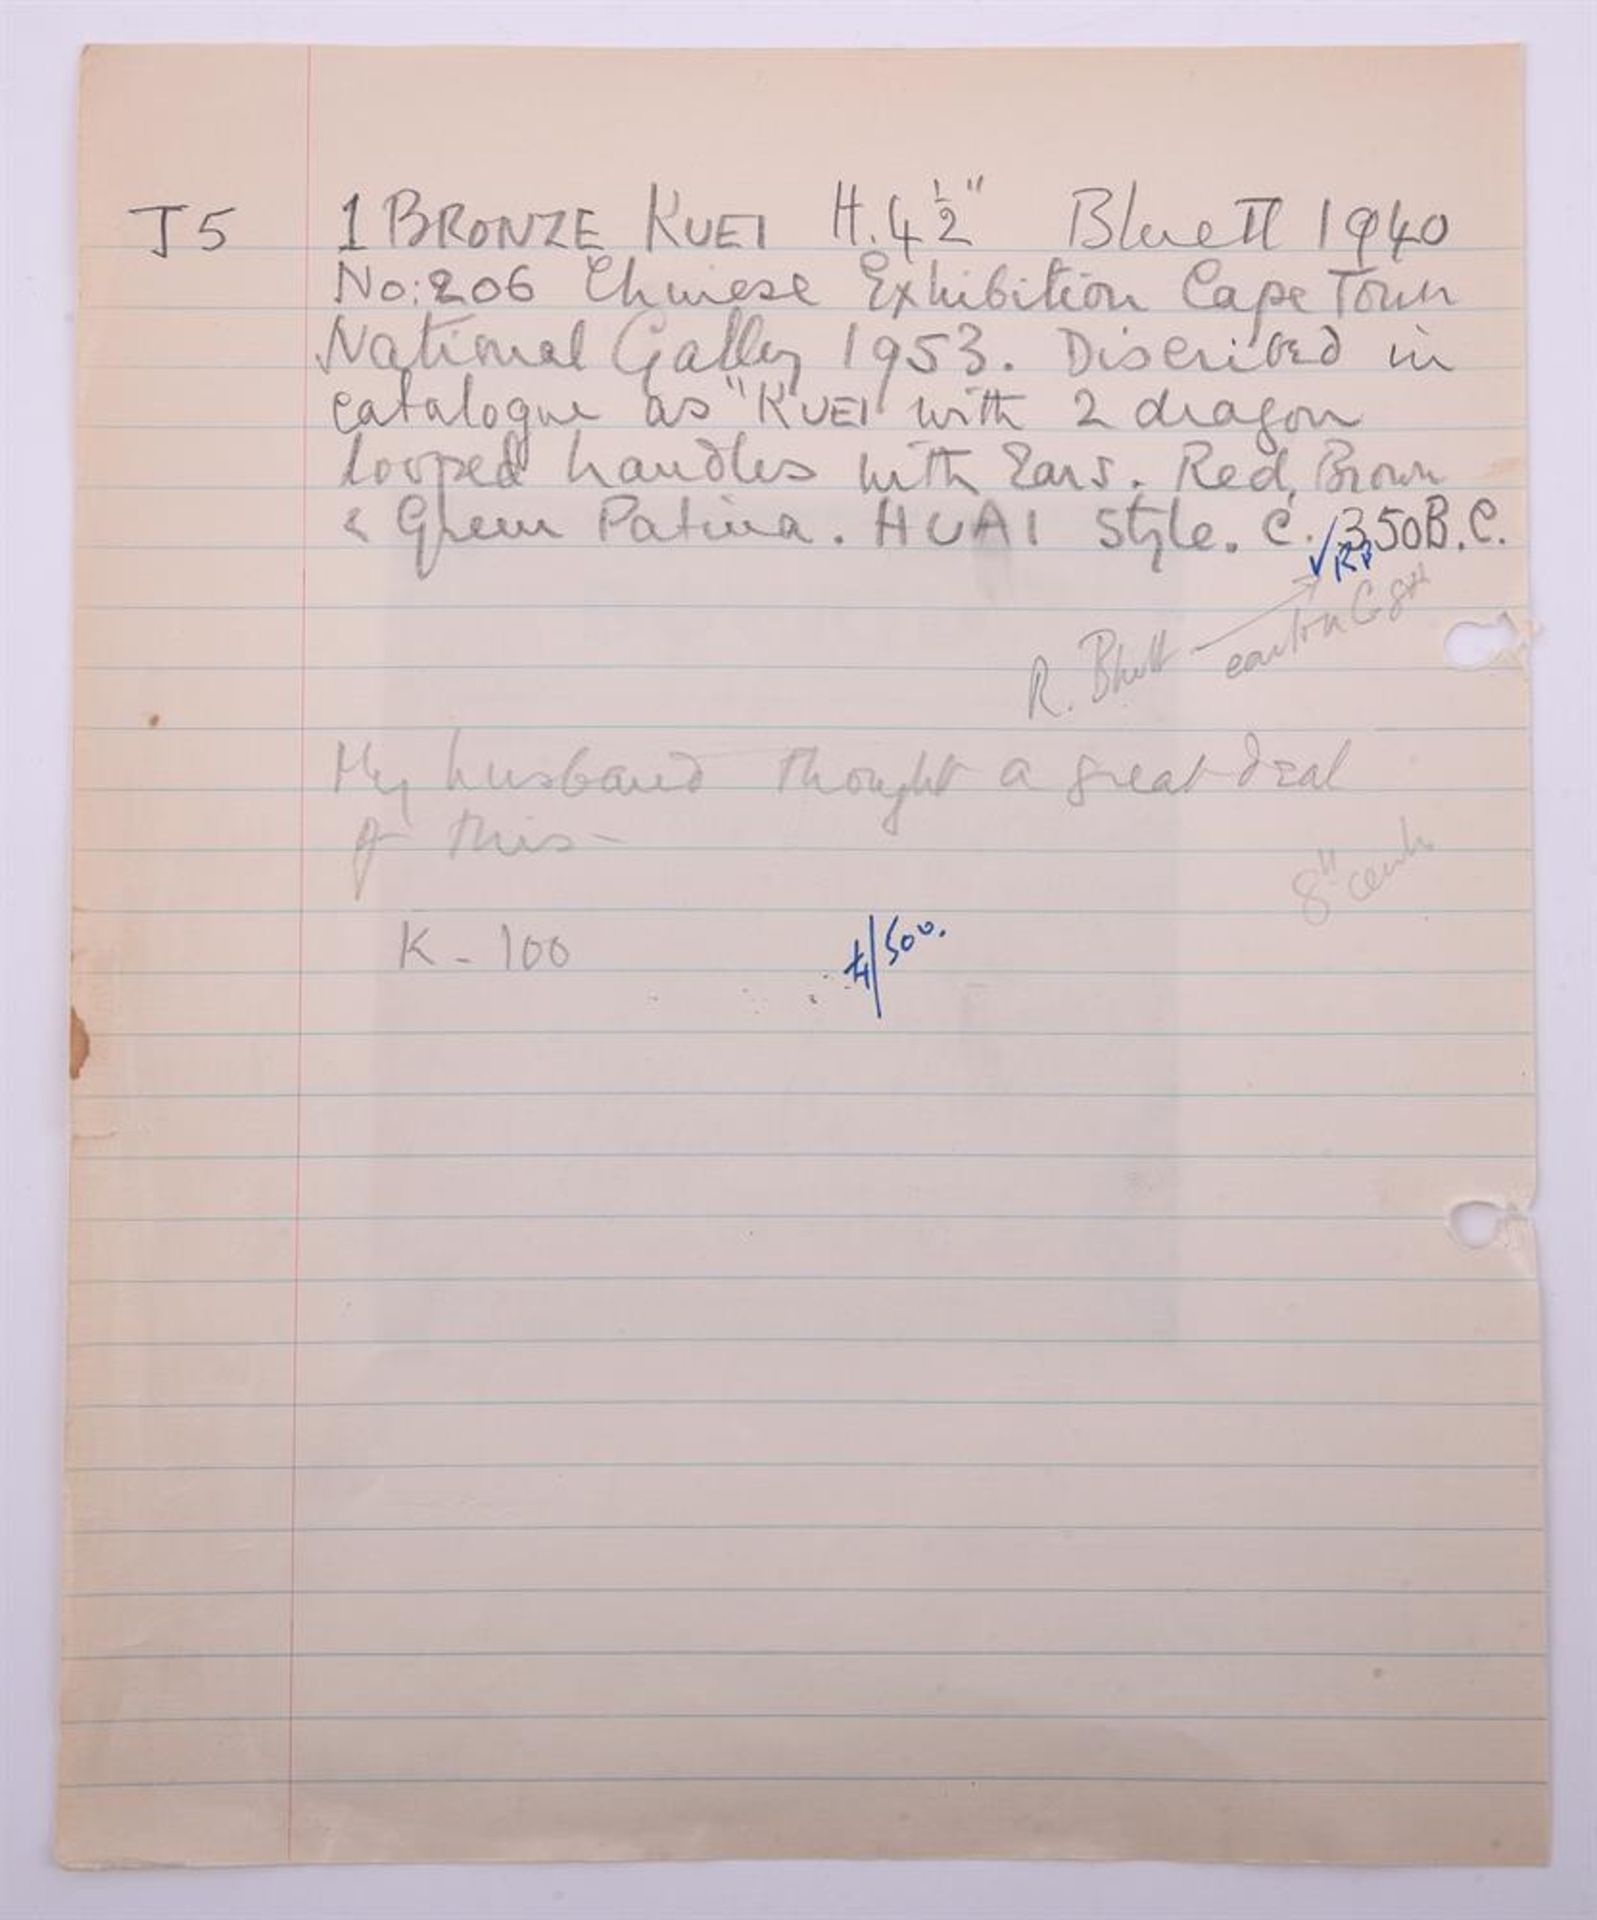 J5 1 BRONZE KUEI H. 4 ½" Bluett 1940
No: 206 Chinese Exhibition Cape Town
National Gallery 1953. Discribed in
catalogue as "KUEI with 2 dragon
looped handles with Ears. Red, Brown
& Green Patina. HUAI Style. C. 350 B.C.
R. Bluett
My husband thought a great deal
of this -
8th cent
K - 100
£/500.